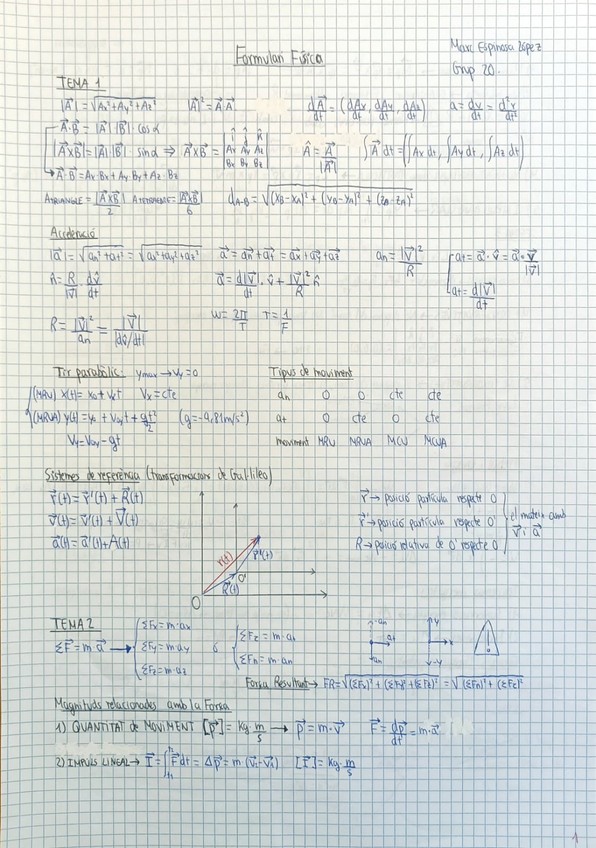 Formulari Física
Marc Espinosa López
Grup 20.
TEMA 1
|A⃗| = √(Ax² + Ay² + Az²)   |A⃗|² = A⃗·A⃗   dA⃗/dt = (dAx/dt, dAy/dt, dAz/dt)   a = dv/dt = d²r/dt²
A⃗·B⃗ = |A⃗|·|B⃗|·cos α
|A⃗xB⃗| = |A⃗|·|B⃗|·sin α ⇒ A⃗xB⃗ = | î ĵ k̂ / Ax Ay Az / Bx By Bz |   Â = A⃗/|A⃗|   ∫A⃗ dt = (∫Ax dt, ∫Ay dt, ∫Az dt)
→ A⃗·B⃗ = Ax·Bx + Ay·By + Az·Bz
ATRIANGLE = |A⃗xB⃗|/2   ATETRAEDRE = |A⃗xB⃗|/6   dA-B = √((xB-xA)² + (yB-yA)² + (zB-zA)²)
Acceleració
|a⃗| = √(an² + at²) = √(ax² + ay² + az²)   a⃗ = an⃗ + at⃗ = ax⃗ + ay⃗ + az⃗   an = |v⃗|²/R   at = a⃗·v̂ = a⃗·v⃗/|v⃗|
n̂ = R/|v⃗| · dv̂/dt   a⃗ = d|v⃗|/dt · v̂ + |v⃗|²/R n̂   at = d|v⃗|/dt
R = |v⃗|²/an = |v⃗|/|dv̂/dt|   w = 2π/T   T = 1/F
Tir parabòlic:   ymax → vy = 0
(MRU) x(t) = x0 + vxt   Vx = cte
(MRUA) y(t) = y0 + v0yt + gt²/2   (g = -9,81 m/s²)
Vy - V0y - gt
Tipus de moviment
an   0   0   cte   cte
at   0   cte   0   cte
moviment   MRU   MRUA   MCU   MCUA
Sistemes de referència (transformacions de Gal·lileo)
r⃗(t) = r⃗'(t) + R⃗(t)
v⃗(t) = v⃗'(t) + V⃗(t)
a⃗(t) = a⃗'(t) + A(t)
r(t)   r'(t)
O'
R⃗(t)
O
r⃗ → posició partícula respecte O
r⃗' → posició partícula respecte O'
R → posició relativa de O' respecte O
el mateix amb
v⃗ i a⃗
TEMA 2
ΣF⃗ = m·a⃗ →
ΣFx = m·ax
ΣFy = m·ay
ΣFz = m·az
ó
ΣFt = m·at
ΣFn = m·an
an
at
-an
y
x
-y
!
Força Resultant → FR = √((ΣFx)² + (ΣFy)² + (ΣFz)²) = √((ΣFn)² + (ΣFt)²)
Magnituds relacionades amb la Força
1) QUANTITAT de MOVIMENT [p⃗] = kg·m/s → p⃗ = m·v⃗   F⃗ = dp⃗/dt = m·a⃗
2) IMPULS LINEAL → I⃗ = ∫ F⃗dt = Δp⃗ = m   [I⃗] = kg·m/s
1